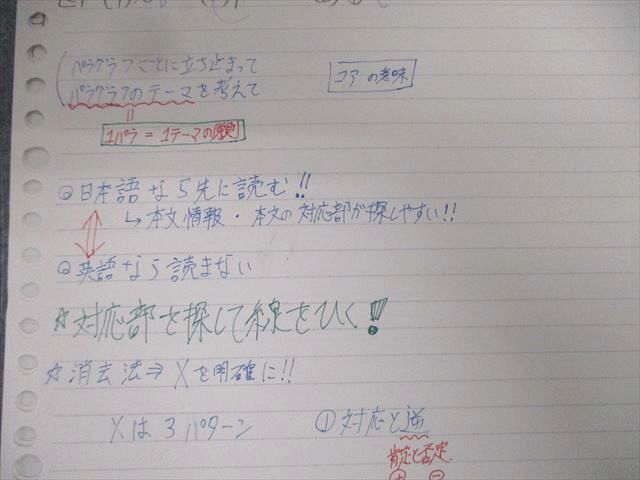 パラグラフごとに立ち止まって
パラグラフのテーマを考えて
コアの意味
1パラ = 1テーマの原則
Q日本語なら先に読む!!
↳本文情報・本文の対応部が探しやすい!!
Q英語なら読まない
☆対応部を探して線をひく!
☆消去法⇒Xを明確に!!
Xは3パターン
①対応と逆
肯定と否定
⊕ ⊖